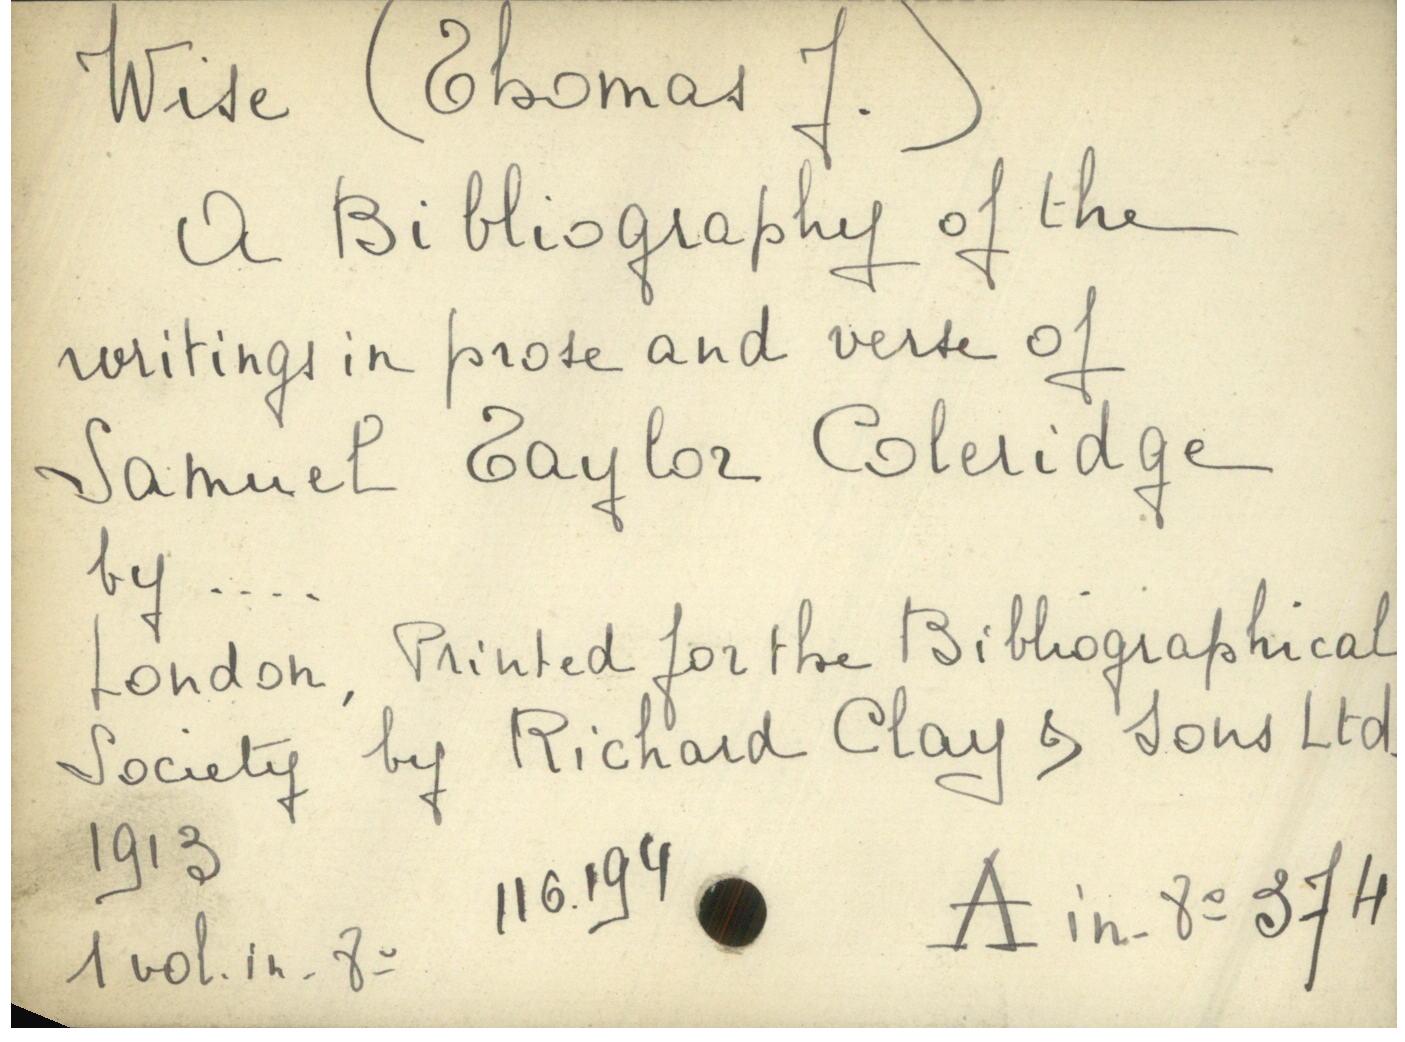 Wise (Thomas J.)
A Bibliography of the
writings in prose and verse of
Samuel Taylor Coleridge
by ....
London, Printed for the Bibliographical
Society by Richard Clay & Sons Ltd.
1913
116.194
A in-8º 374
1 vol. in-8º